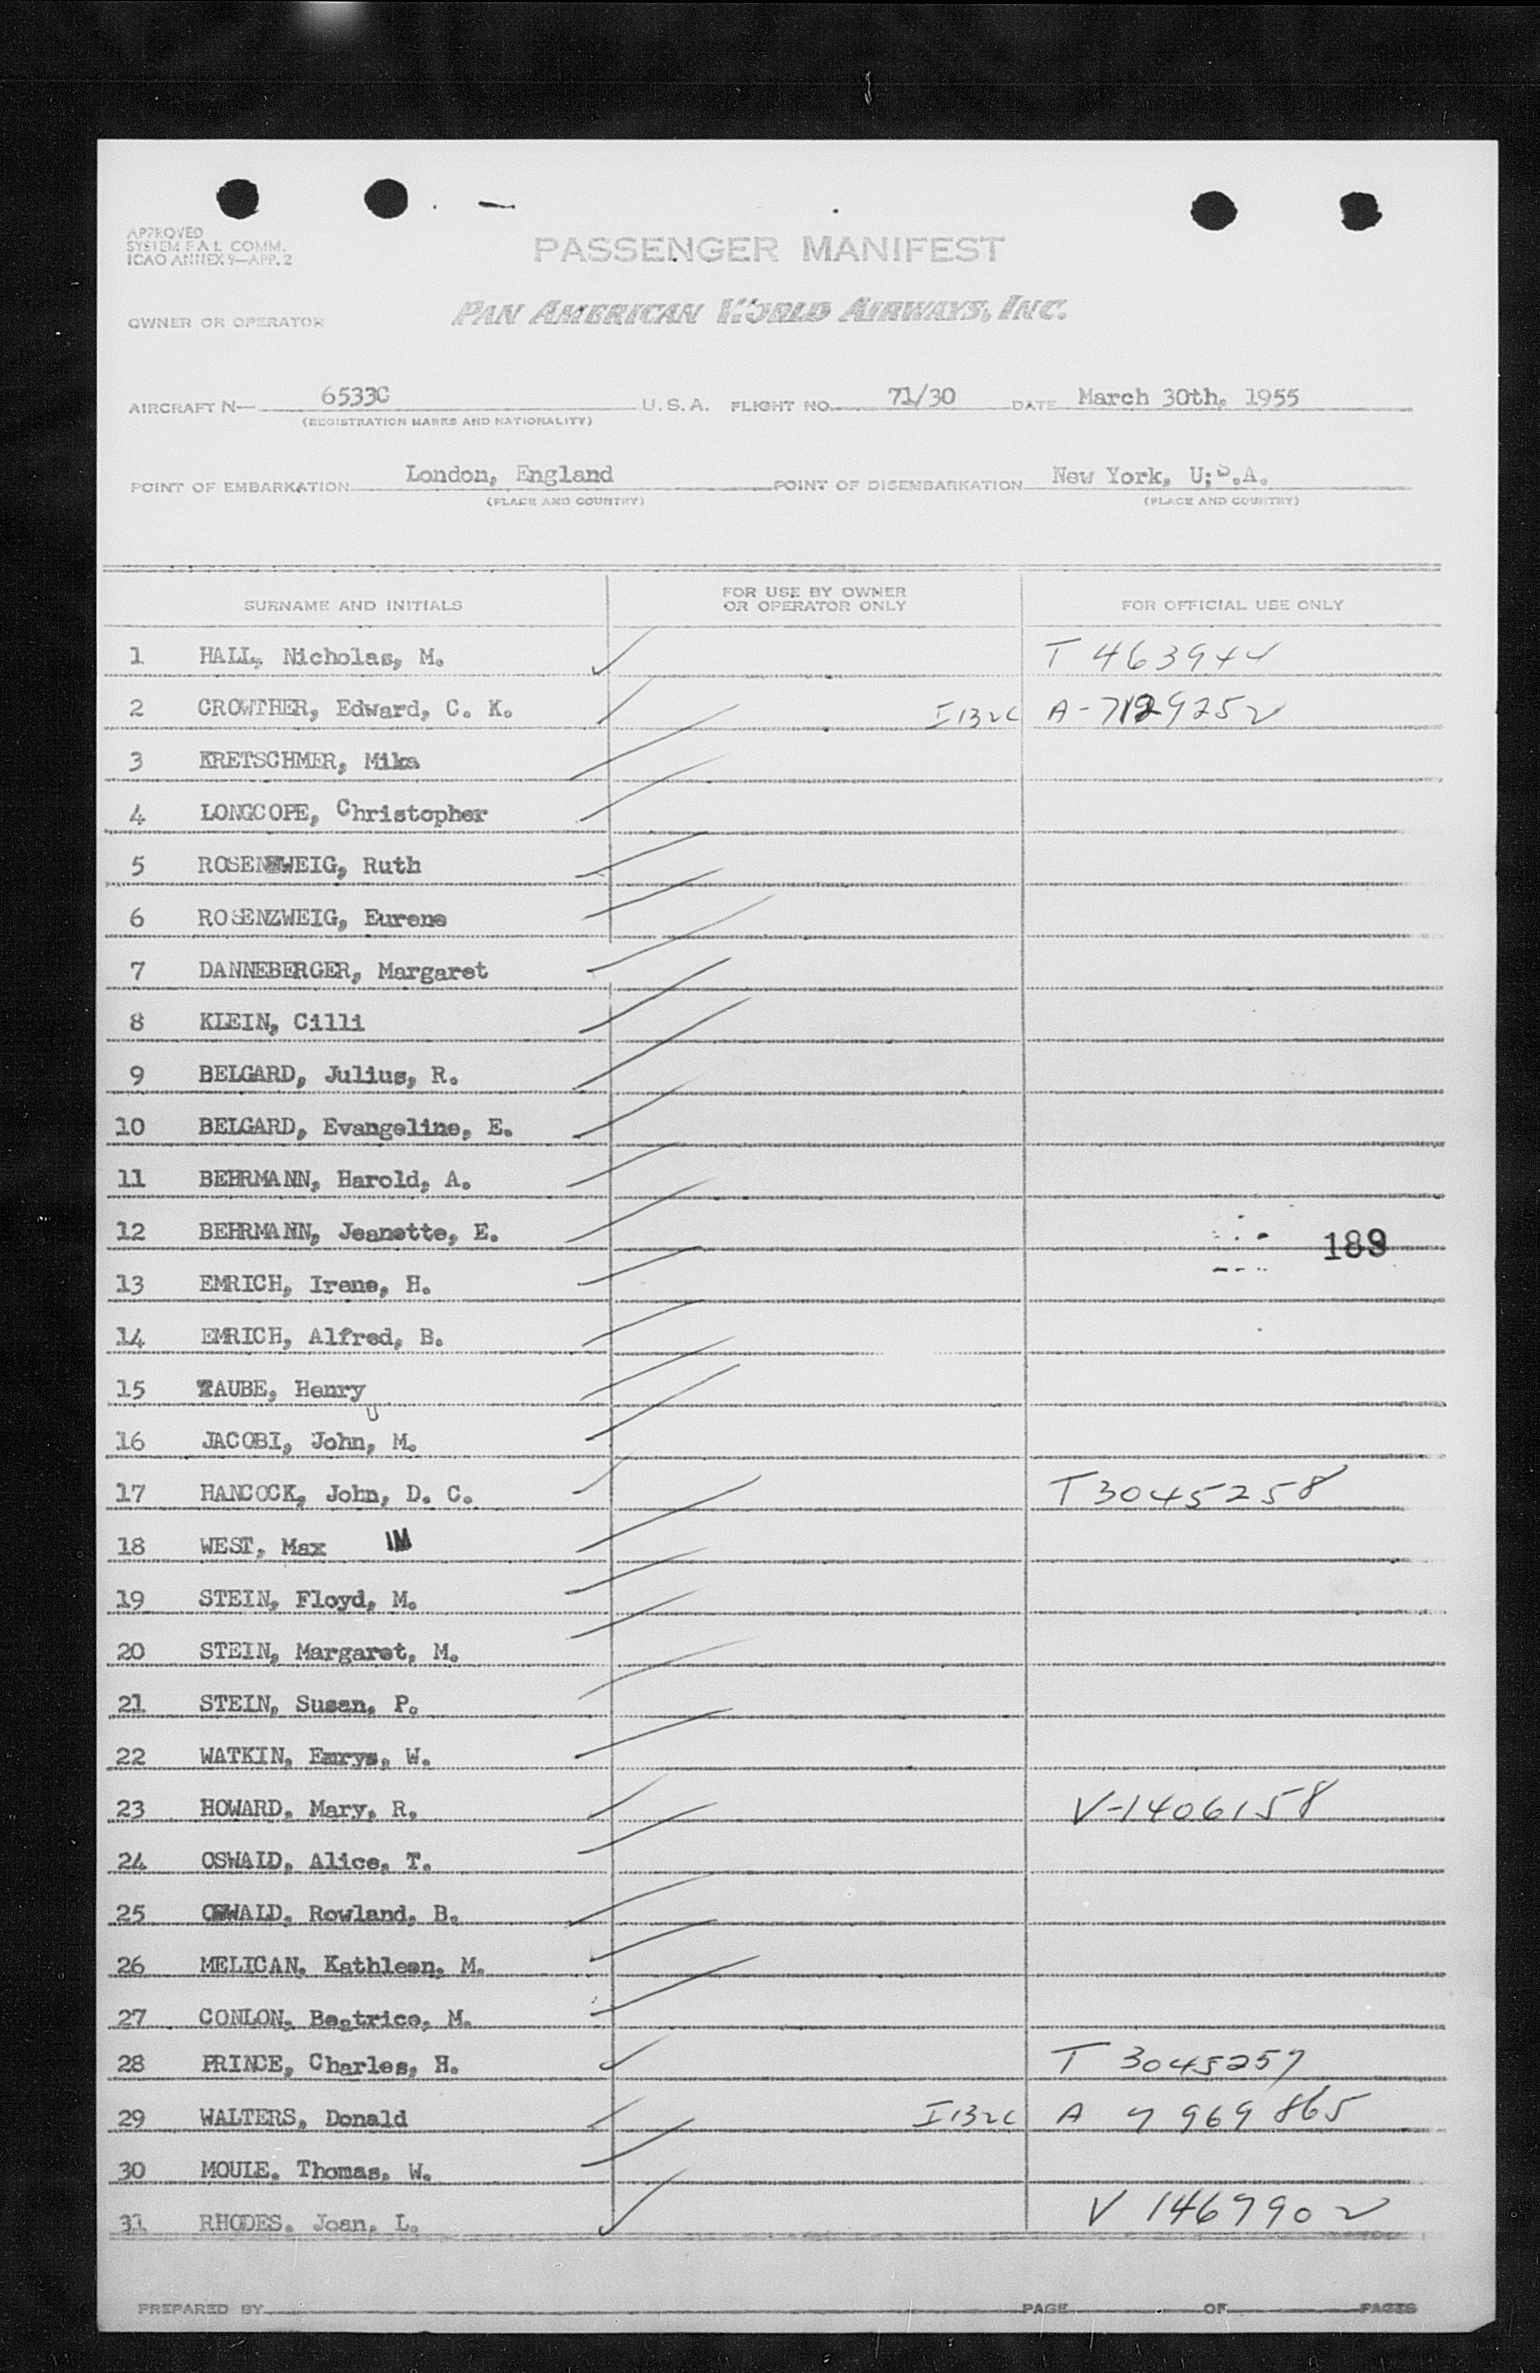 APPROVED
SYSTEM F.A.L. COMM.
ICAO ANNEX 9—APP. 2
PASSENGER MANIFEST
OWNER OR OPERATOR PAN AMERICAN WORLD AIRWAYS, INC.
AIRCRAFT N— 6533C U.S.A. FLIGHT NO. 71/30 DATE March 30th, 1955
(REGISTRATION MARKS AND NATIONALITY)
POINT OF EMBARKATION London, England POINT OF DISEMBARKATION New York, U;S.A.
(PLACE AND COUNTRY) (PLACE AND COUNTRY)
SURNAME AND INITIALS FOR USE BY OWNER OR OPERATOR ONLY FOR OFFICIAL USE ONLY
1 HALL, Nicholas, M. T 463944
2 CROWTHER, Edward, C. K. I132C A-7129252
3 KRETSCHMER, Mika
4 LONGCOPE, Christopher
5 ROSENZWEIG, Ruth
6 ROSENZWEIG, Eurene
7 DANNEBERGER, Margaret
8 KLEIN, Cilli
9 BELGARD, Julius, R.
10 BELGARD, Evangeline, E.
11 BEHRMANN, Harold, A.
12 BEHRMANN, Jeanette, E.
189
13 EMRICH, Irene, H.
14 EMRICH, Alfred, B.
15 TAUBE, Henry
16 JACOBI, John, M.
17 HANCOCK, John, D. C. T3045258
18 WEST, Max
19 STEIN, Floyd, M.
20 STEIN, Margaret, M.
21 STEIN, Susan, P.
22 WATKIN, Emrys, W.
23 HOWARD, Mary, R. V-1406158
24 OSWALD, Alice, T.
25 OSWALD, Rowland, B.
26 MELICAN, Kathleen, M.
27 CONLON, Beatrice, M.
28 PRINCE, Charles, H. T 3045257
29 WALTERS, Donald I132C A 7969865
30 MOULE, Thomas, W.
31 RHODES, Joan, L. V 1467902
PREPARED BY PAGE OF PAGES